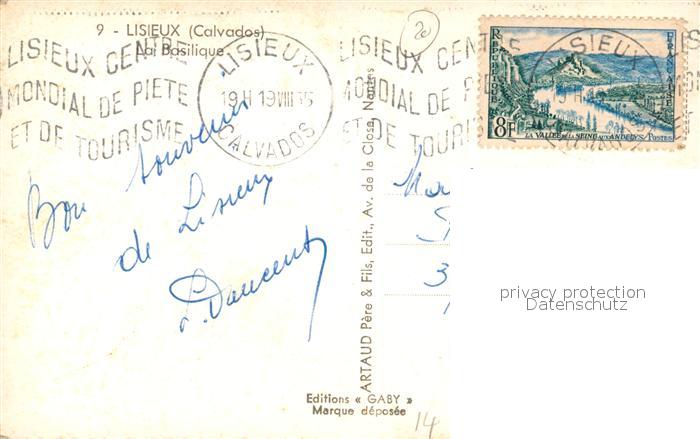 9 - LISIEUX (Calvados)
La Basilique
LISIEUX CENTRE
MONDIAL DE PIÉTÉ
ET DE TOURISME
LISIEUX
19H 19 VIII 55
CALVADOS
LISIEUX CENTRE
MONDIAL DE PIÉTÉ
ET DE TOURISME
LISIEUX
CALVADOS
20
RÉPUBLIQUE FRANÇAISE
8F
LA VALLÉE DE LA SEINE AUX ANDELYS
POSTES
Bon souvenir
de Lisieux
ARTAUD Père & Fils, Edit., Av. de la Close, Nantes
3
privacy protection
Datenschutz
Editions « GABY »
Marque déposée
14